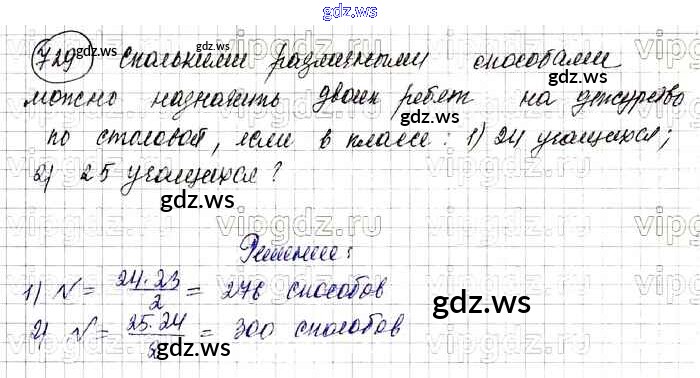 gdz.ws
729 Сколькими различными способами
можно назначить двоих ребят на дежурство
по столовой, если в классе: 1) 24 учащихся;
2) 25 учащихся?
Решение:
1) N = 24·23/2 = 276 способов
2) N = 25·24/2 = 300 способов
gdz.ws